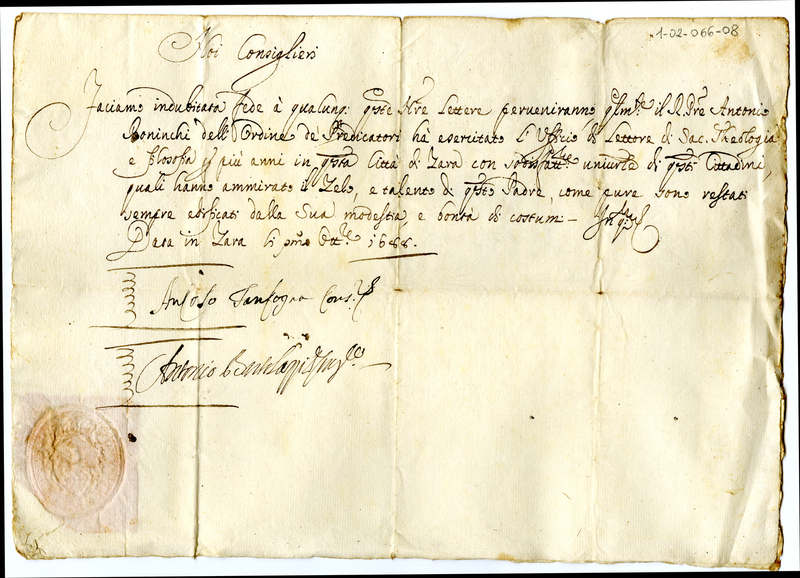 1-02-066-08
Noi Consiglieri
Faciamo indubitata fede à qualunq: queste Nre Lettere perveniranno qlmte il R. Pre Antonio
Boninchi dell'Ordine de Predicatori hà esercitato l'Uffício di Lettore di Sac. Theologia
e filosofia p più anni in questa Città di Zara con universle di questi Cittadini,
quali hanno ammirato il Zelo, e talento di questo Padre, come pure sono restati
sempre edificati dalla Sua modestia, e bontà di costumi
Data in Zara li pmo Ottre 1688.
Tanfogna Consre
Antonio